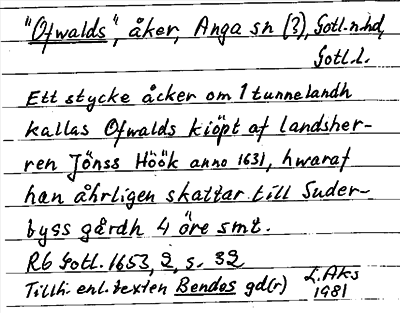 "Ofwalds", åker, Anga sn (?), Gotl.n.hd,
Gotl.l.
Ett stycke åcker om 1 tunnelandh
kallas Ofwalds kiöpt af landsher-
ren Jönss Höök anno 1631, hwaraf
han åhrligen skattar till Suder-
byss gårdh 4 öre smt.
Rb Gotl. 1653, 2, s. 32
Tillh. enl. texten Bendos gd(r) L. Aks
1981